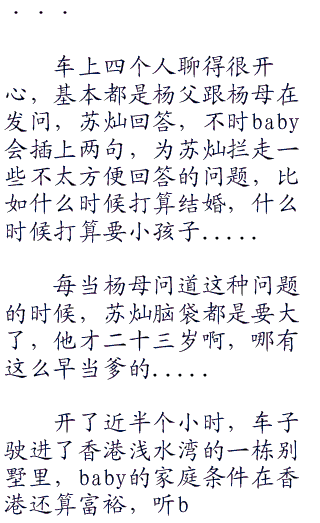 . . .
车上四个人聊得很开
心，基本都是杨父跟杨母在
发问，苏灿回答，不时baby
会插上两句，为苏灿拦走一
些不太方便回答的问题，比
如什么时候打算结婚，什么
时候打算要小孩子.....
每当杨母问道这种问题
的时候，苏灿脑袋都是要大
了，他才二十三岁啊，哪有
这么早当爹的.....
开了近半个小时，车子
驶进了香港浅水湾的一栋别
墅里，baby的家庭条件在香
港还算富裕，听b